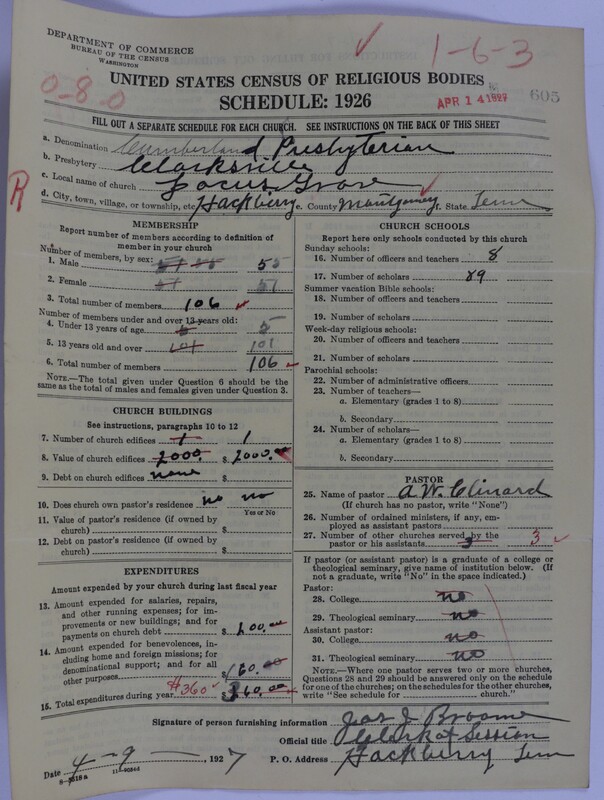 DEPARTMENT OF COMMERCE
BUREAU OF THE CENSUS
WASHINGTON
1-6-3
0-8-0
UNITED STATES CENSUS OF RELIGIOUS BODIES
SCHEDULE: 1926
APR 14 1927
605
FILL OUT A SEPARATE SCHEDULE FOR EACH CHURCH. SEE INSTRUCTIONS ON THE BACK OF THIS SHEET
a. Denomination Cumberland Presbyterian
b. Presbytery Clarksville
c. Local name of church Locus Grove
R
d. City, town, village, or township, etc. Hackberry e. County Montgomery f. State Tenn
MEMBERSHIP
Report number of members according to definition of member in your church
Number of members, by sex:
1. Male 55
2. Female 51
3. Total number of members 106
Number of members under and over 13 years old:
4. Under 13 years of age 5 5
5. 13 years old and over 101 101
6. Total number of members 106
NOTE.—The total given under Question 6 should be
same as the total of males and females given under Question 3.
CHURCH BUILDINGS
See instructions, paragraphs 10 to 12
7. Number of church edifices 1 1
8. Value of church edifices 2000. $ 2000.00
9. Debt on church edifices none $
10. Does church own pastor's residence no no
Yes or No
11. Value of pastor's residence (if owned by
church) $
12. Debt on pastor's residence (if owned by
church) $
EXPENDITURES
Amount expended by your church during last fiscal year
13. Amount expended for salaries, repairs,
and other running expenses; for im-
provements or new building; and for
payments on church debt $ 200.00
14. Amount expended for benevolences, in-
cluding home and foreign missions; for
denominational support; and for all
other purposes $160.00
15. Total expenditures during year $360 $ 360.00
CHURCH SCHOOLS
Report here only schools conducted by this church
Sunday schools:
16. Number of officers and teachers 8
17. Number of scholars 89
Summer vacation Bible schools:
18. Number of officers and teachers
19. Number of scholars
Week-day religious schools:
20. Number of officers and teachers
21. Number of scholars
Parochial schools:
22. Number of administrative officers
23. Number of teachers—
a. Elementary (grades 1 to 8)
b. Secondary
24. Number of scholars—
a. Elementary (grades 1 to 8)
b. Secondary
PASTOR
25. Name of pastor A. W. Clinard
(If church has no pastor, write "None")
26. Number of ordained ministers, if any, em-
ployed as assistant pastors
27. Number of other churches served by the
pastor or his assistants 3 3
If pastor (or assistant pastor) is a graduate of a college or
theological seminary, give name of institution below. (If
not a graduate, write "No" in the space indicated.)
Pastor:
28. College no
29. Theological seminary no
Assistant pastor:
30. College no
31. Theological seminary no
NOTE.—Where one pastor serves two or more churches,
Questions 28 and 29 should be answered only on the schedule
for one of the churches; on the schedules for the other churches,
write "See schedule for church."
Signature of person furnishing information Jas J Broome
Official title Clark of Session
Date 4-9, 1927 P. O. Address Hackberry Tenn